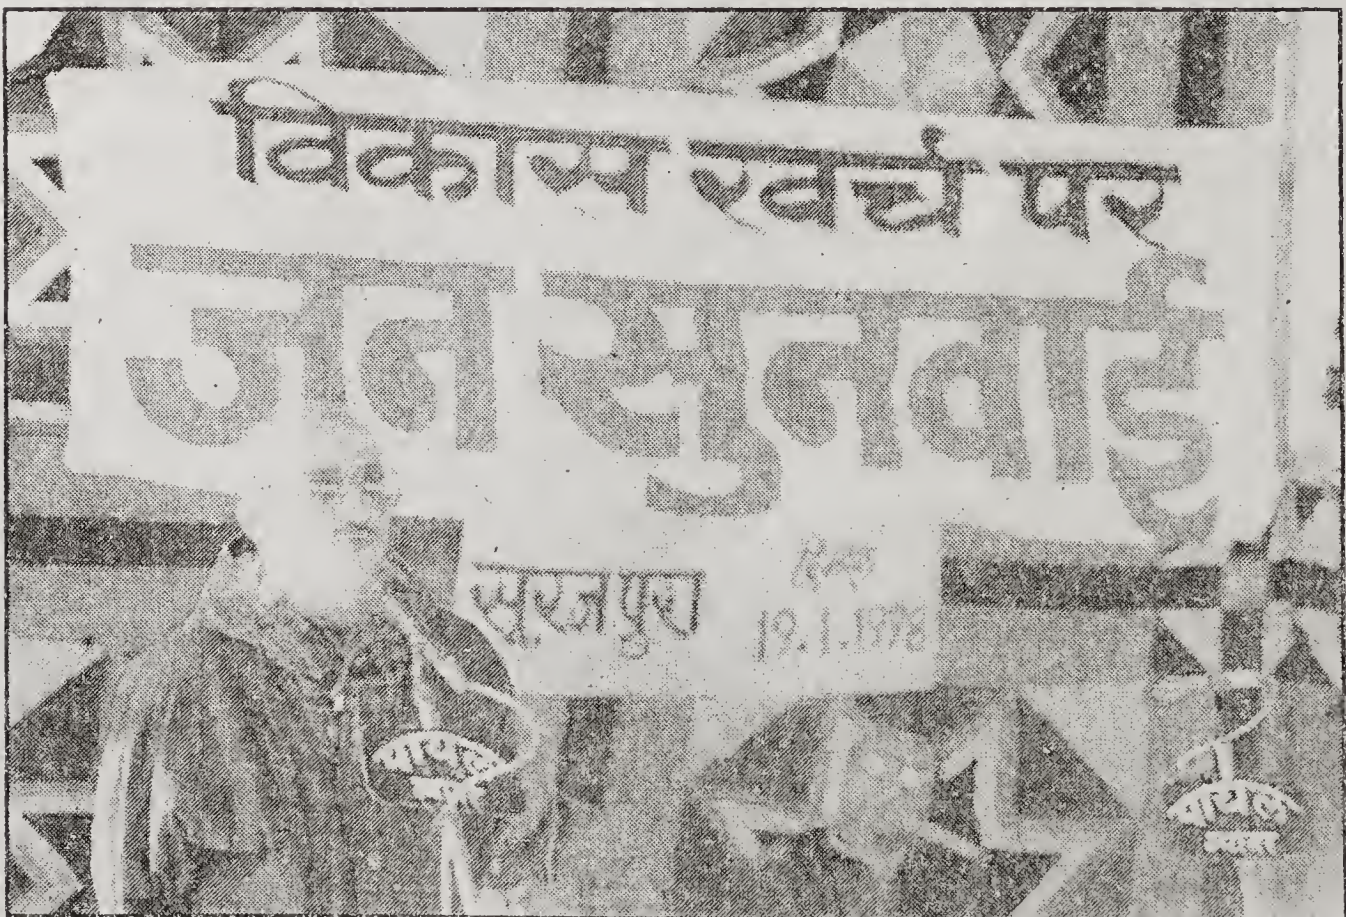 विकास खर्च पर
जन सुनवाई
सूरजपुरा
दिनांक
19.1.1998
पायल
पायल